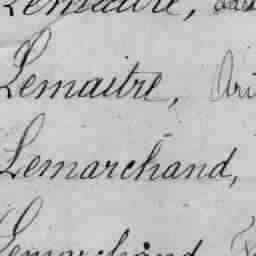 Lemaitre,
Lemaitre, Ari
Lemarchand,
Lemarchand